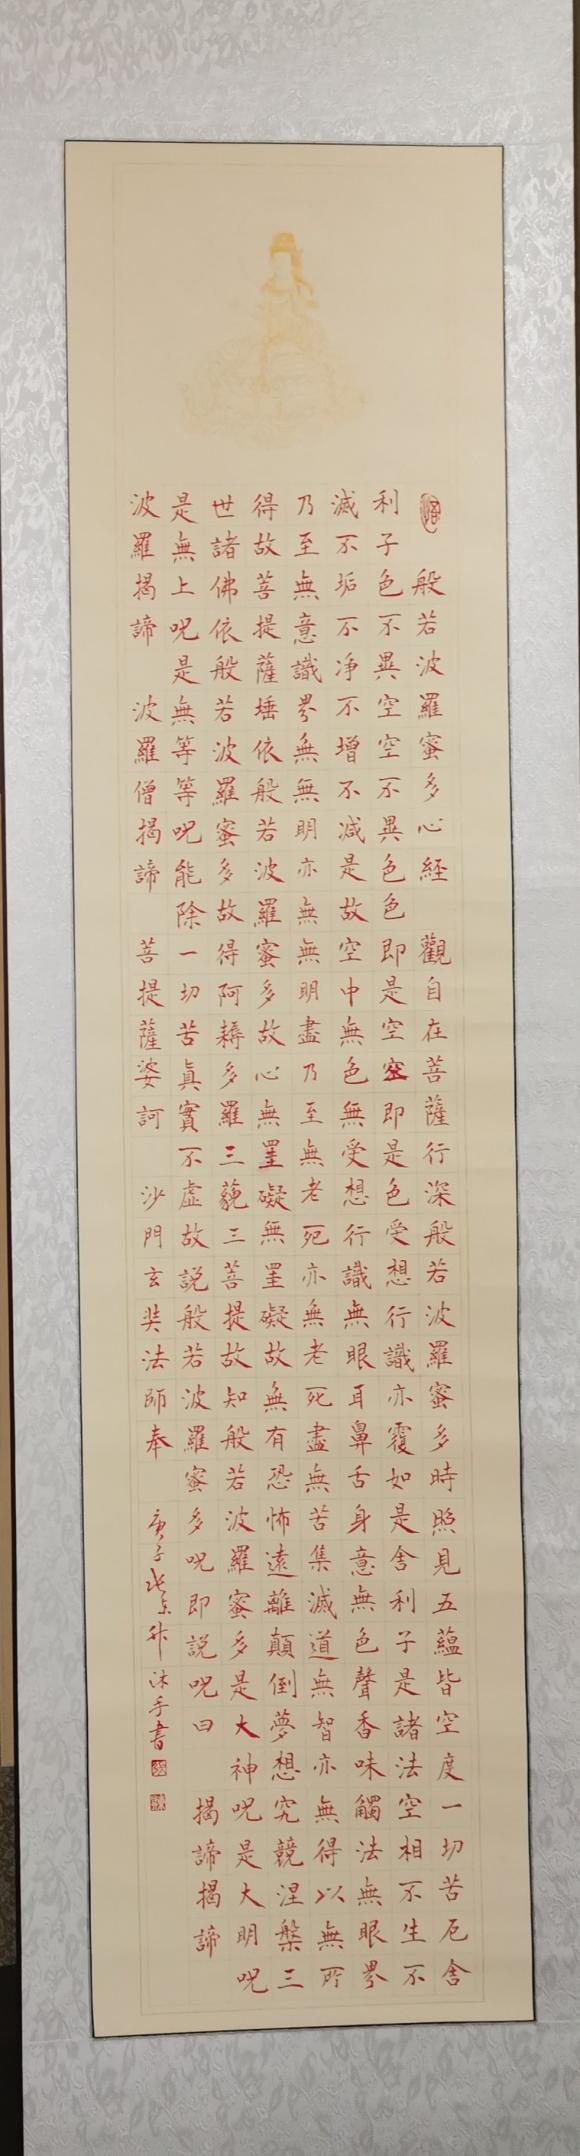 般若波羅蜜多心経 觀自在菩薩行深般若波羅蜜多時照見五蘊皆空度一切苦厄舍
利子色不異空空不異色色即是空空即是色受想行識亦覆如是舍利子是諸法空相不生不
滅不垢不净不增不减是故空中無色無受想行識無眼耳鼻舌身意無色聲香味觸法無眼界
乃至無意識界無無明亦無無明盡乃至無老死亦無老死盡無苦集滅道無智亦無得以無所
得故菩提薩埵依般若波羅蜜多故心無罣礙無罣礙故無有恐怖遠離顛倒夢想究竸涅槃三
世諸佛依般若波羅蜜多故得阿耨多羅三藐三菩提故知般若波羅蜜多是大神呪是大明呪
是無上呪是無等等呪能除一切苦真實不虛故説般若波羅蜜多呪即説呪曰 揭諦揭諦
波羅揭諦 波羅僧揭諦 菩提薩婆訶 沙門玄奘法師奉
庚子 沐手書